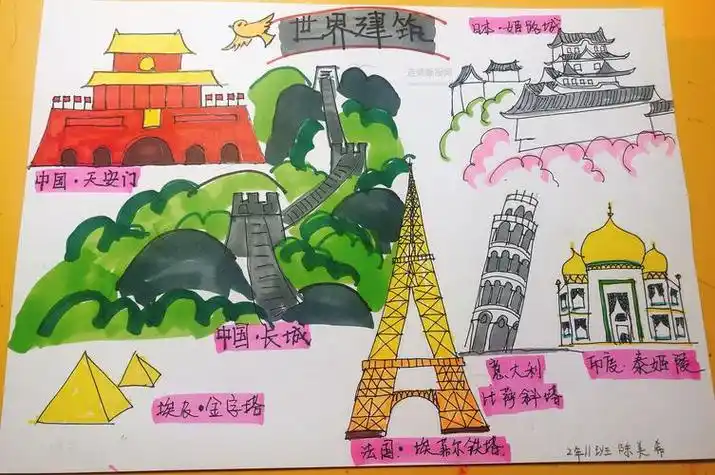 世界建筑
日本·姬路城
中国·天安门
中国·长城
意大利
比萨斜塔
印度·泰姬陵
埃及·金字塔
法国·埃菲尔铁塔
2年11班 陈美希